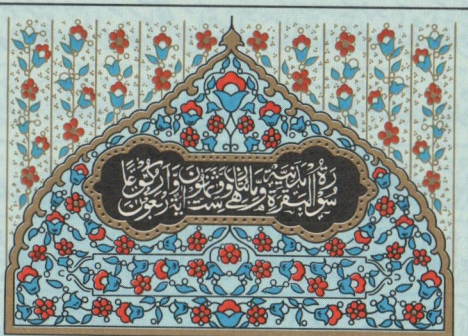 سورة البقرة مدنية وهي مائتان وست وثمانون آية وأربعون ركوعا